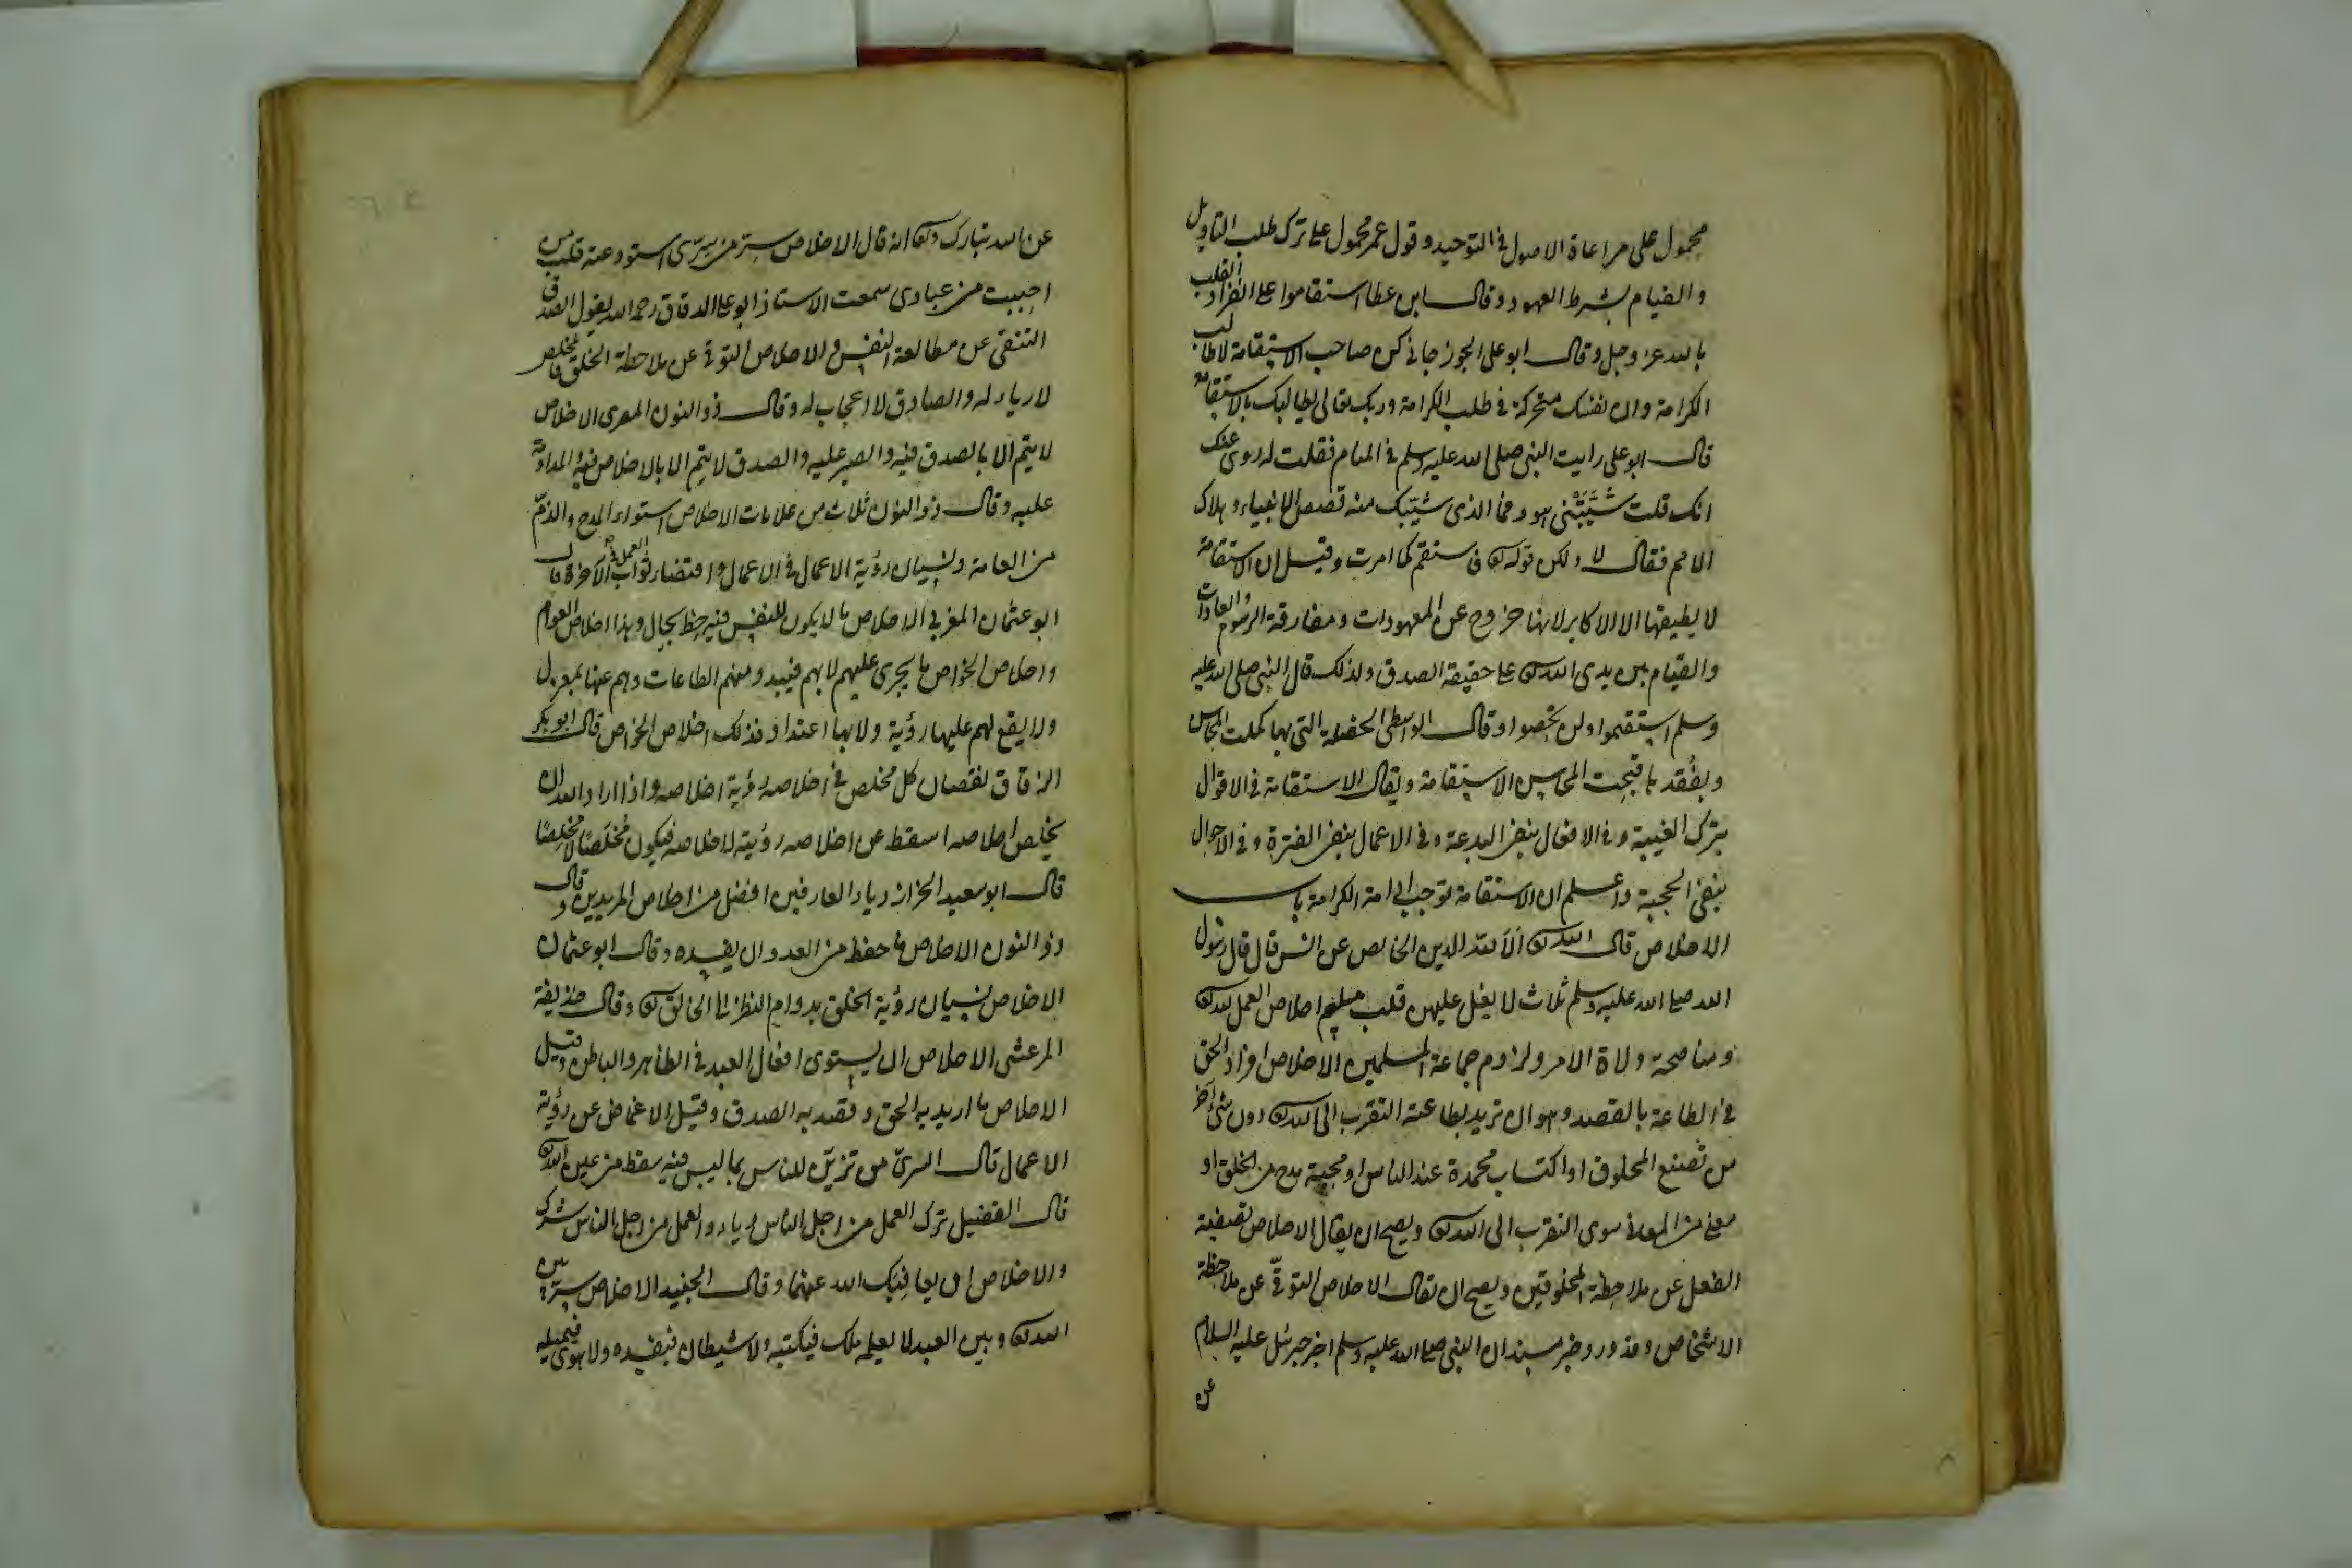 محمول على مراعاة الاصول في التوحيد وقول عمر محمول على ترك طلب التاويل
والقيام بشرط العهود وقال ابن عطا استقاموا على انفراد القلب
بالله عز وجل وقال ابو على الجوزجاني كن صاحب الاستقامة لا طالب
الكرامة وان نفسك متحركة في طلب الكرامة وربك تعالى يطالبك بالاستقامة
قال ابو على رايت النبى صلى الله عليه وسلم في المنام فقلت له روى عنك
انك قلت شَيَّبَتْنى هود فما الذى شيّبك منه قصص الانبياء وهلاك
الامم فقال لا ولكن قوله تع فاستقم كما امرت وقيل ان الاستقامة
لا يطيقها الا الاكابر لانها خروج عن المعهودات ومفارقة الرسوم والعادات
والقيام بين يدى الله تع على حقيقة الصدق ولذلك قال النبى صلى الله عليه
وسلم استقيموا ولن تحصوا وقال الواسطى الخصلة التى بها كملت المحاسن
وبفُقد ها قبحت المحاسن الاستقامة ويقال الاستقامة في الاقوال
بترك الغيبة وفي الافعال بنفى البدعة وفي الاعمال بنفى الفترة وفي الاحوال
بنفى الحجبة واعلم ان الاستقامة توجب ادامة الكرامة باب
الاخلاص قال الله تع اَلَا لله الدين الخالص عن انس قال قال رسول
الله صلى الله عليه وسلم ثلاث لا يغل عليهن قلب مسلم اخلاص العمل لله تع
ومناصحة ولاة الامر ولزوم جماعة المسلمين الاخلاص افراد الحق
في الطاعة بالقصد وهو ان تريد بطاعته التقرب الى الله تع دون شئ آخر
من تصنع المخلوق او اكتساب محمدة عند الناس او محبة مدح من الخلق او
معنى من المعانى سوى التقرب الى الله تع ويصح ان يقال الاخلاص تصفية
الفعل عن ملاحظة المخلوقين ويصح ان يقال الاخلاص التوقّى عن ملاحظة
الاشخاص وقد ورد خبر مسند ان النبى صلى الله عليه وسلم اخبر جبرئيل عليه السلام
عن
عن الله تبارك وتعا انه قال الاخلاص سر من سرّى استودعته قلب من
احببت من عبادى سمعت الاستاذ ابو على الدقاق رحمه الله يقول الصدق
التنقى عن مطالعة النفس والاخلاص التوقى عن ملاحظة الخلق فالمخلص
لا رياء له والصادق لا اعجاب له وقال ذو النون المصرى الاخلاص
لا يتم الا بالصدق فيه والصبر عليه والصدق لا يتم الا بالاخلاص فيه والمداومة
عليه وقال ذو النون ثلاث من علامات الاخلاص استواء المدح والذمّ
من العامة ونسيان رؤية الاعمال في الاعمال واقتضاء ثواب العمل في الآخرة قال
ابو عثمان المغربى الاخلاص ما لا يكون للنفس فيه حظ بحال وهذا اخلاص العوام
واخلاص الخواص ما يجرى عليهم لا بهم فيبدو منهم الطاعات وهم عنها بمعزل
ولا يقع لهم عليها رؤية ولا بها اعتداد فذلك اخلاص الخواص قال ابو بكر
الزقاق نقصان كل مخلص في اخلاصه رؤية اخلاصه واذا اراد الله ان
يخلص اخلاصه اسقط عن اخلاصه رؤيته لاخلاصه فيكون مُخلَصًا لا مُخلِصًا
قال ابو سعيد الخراز رياء العارفين افضل من اخلاص المريدين وقال
ذو النون الاخلاص ما حفظ من العدو ان يفسده وقال ابو عثمان
الاخلاص نسيان رؤية الخلق بدوام النظر الى الخالق تع وقال حذيفة
المرعشى الاخلاص ان يستوى افعال العبد في الظاهر والباطن وقيل
الاخلاص ما اريد به الحق وقصد به الصدق وقيل الاغماض عن رؤية
الاعمال قال السرىّ من تزيّن للناس بما ليس فيه سقط من عين الله تع
قال الفضيل ترك العمل من اجل الناس رياء والعمل من اجل الناس شرك
والاخلاص ان يعافيك الله عنهما وقال الجنيد الاخلاص سر بين
الله تع وبين العبد لا يعلمه ملك فيكتبه ولا شيطان فيفسده ولا هوى فيميله